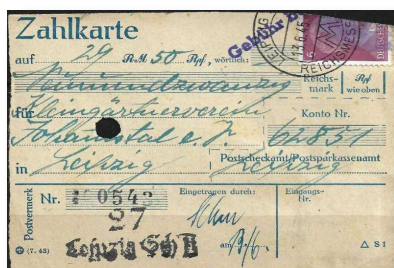 Zahlkarte
Gebühr B
LEIPZIG
REICHSMESSE
auf 29 RM 50 Rpf, wörtlich:
Neunundzwanzig
Reichsmark Rpf wie oben
für Kleingärtnerverein
Konto Nr.
Johannstal e.V. 62851
Postscheckamt/Postsparkassenamt
in Leipzig Leipzig
Postvermerk
Nr. 0543
Eingetragen durch:
Eingangs-Nr.
27
Leipzig
am 19/6.
(7. 43)
△ S 1